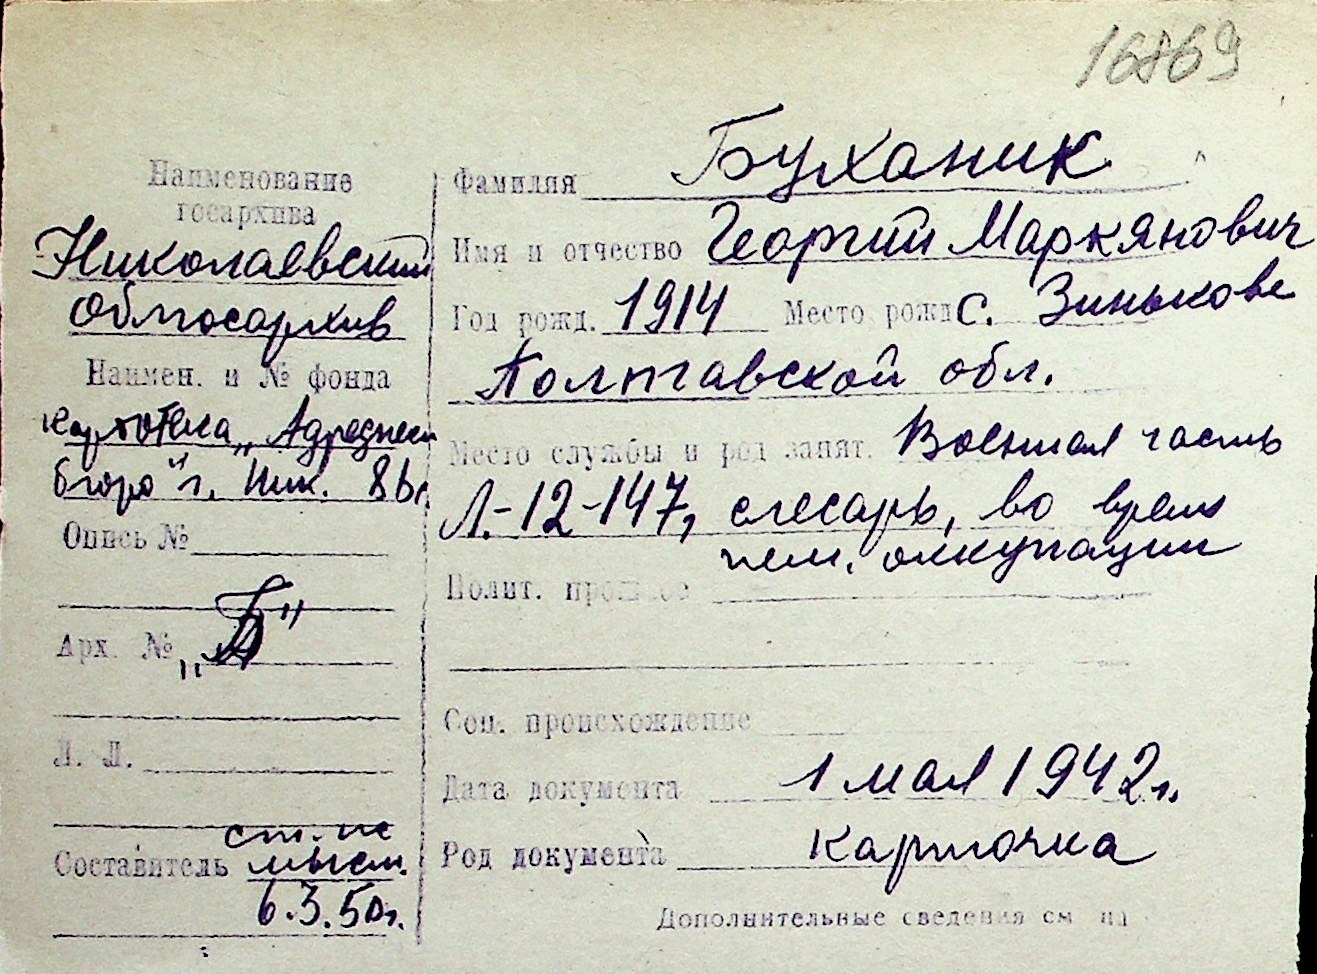 16869
Наименование
госархива
Николаевский
облгосархив
Наимен. и № фонда
картотека „Адресного
бюро" г. Ник.
Опись №
Арх. № „Б"
Л. Л.
Составитель
6.3.50г.
Фамилия Буханик
Имя и отчество Георгий Маркянович
Год рожд. 1914 Место рожд с. Зинькове
Полтавской обл.
Место службы и род занят. Военная часть
Л.-12-147, слесарь, во время
нем. оккупации
Полит. прошлое
Соц. происхождение
Дата документа 1 мая 1942г.
Род документа карточка
Дополнительные сведения см на